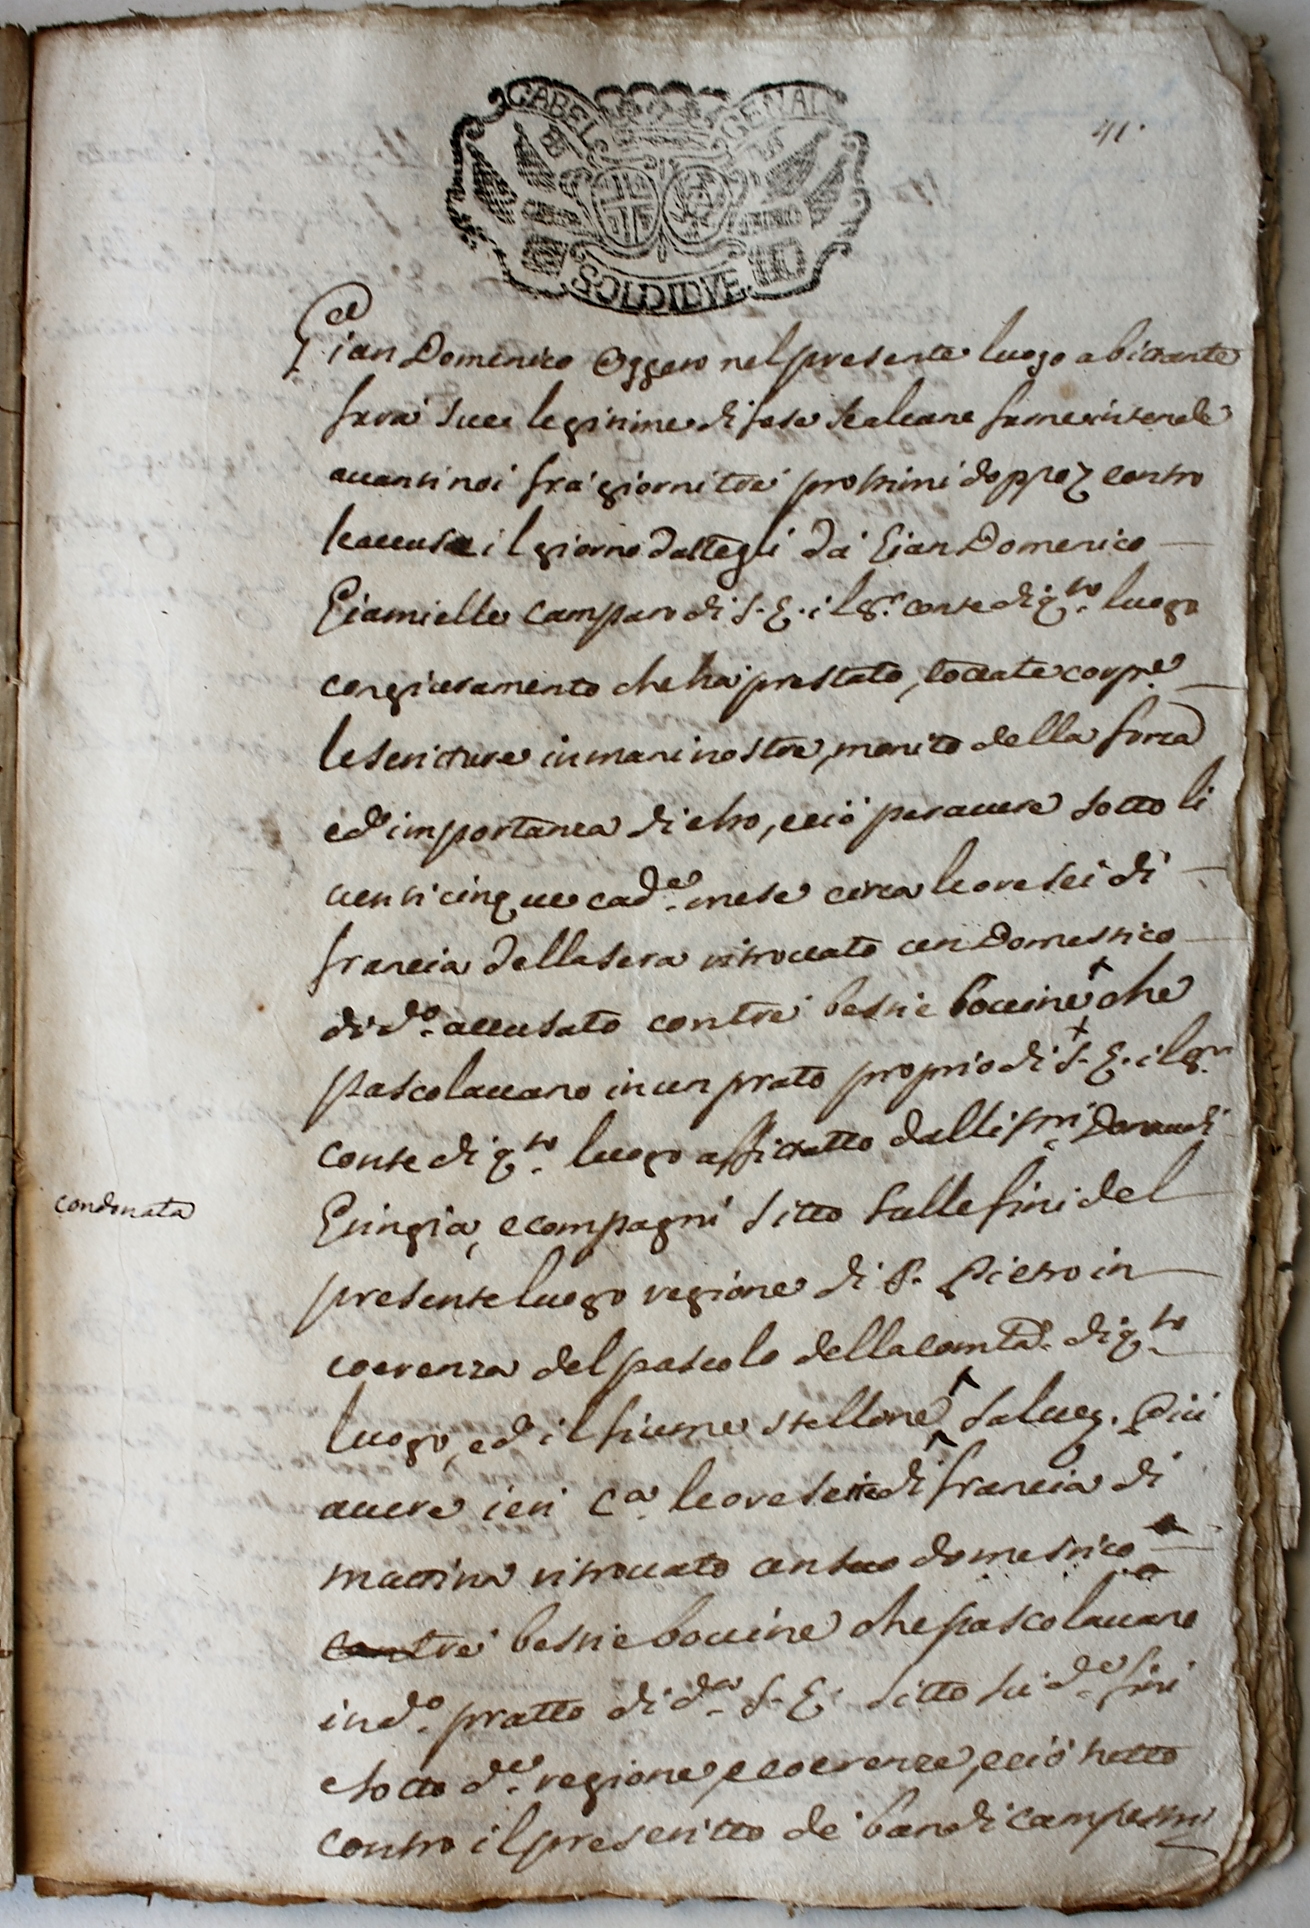 GABEL GENAL
41.
SOLDI DVE
Gian Domenico Oggero nel presente luogo abittante
farà sue legitime difese se alcune farne intende
auanti noi frà giorni trè prossimi doppo contro
le accuse il giorno dattegli dà Gian Domenico
Giamielle camparo di S. E. il Sr. conte di qto. luogo
con giuramento che hà prestato, toccate corpe.
le scritture in mani nostre, monito della forza
ed' importanza di esso, e ciò per auere sotto li
uenti cinque cade. mese circa le ore sei di
francia della sera ritrouato un Domestico
di do. accusato con trè bestie bouine che
pascolauano in un prato proprio di S. E. il Sr.
conte di qto. luogo affittatto dalli ssri.
e compagni sitto sulle fini del
condonata
presente luogo regione di S. Pietro in
coerenza del pascolo della comtà. di qto.
luogo, ed il fiume stellone, Più
auere ieri ca. le ore sette di francia di
mattina ritrouato un suo domestico
con trè bestie bouine che pascolauano
in do. pratto di da. S. E. sitto sù de. fini
e sotto de. regione, e coerenze, e ciò
contro il prescritto de bandi campestri